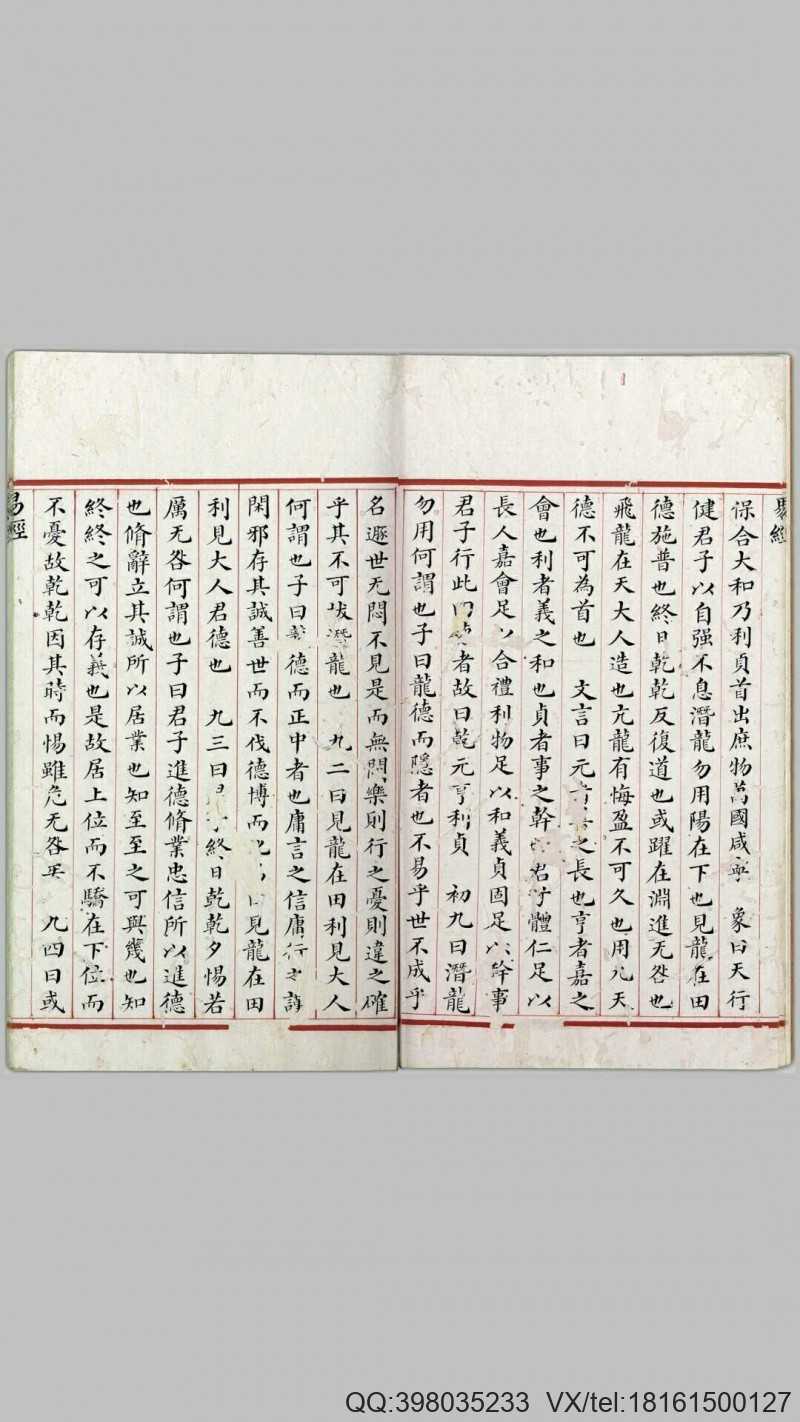 易經
保合大和乃利貞首出庶物萬國咸寧　象曰天行
健君子以自强不息潛龍勿用陽在下也見龍在田
德施普也終日乾乾反復道也或躍在淵進无咎也
飛龍在天大人造也亢龍有悔盈不可久也用九天
德不可為首也　文言曰元者善之長也亨者嘉之
會也利者義之和也貞者事之幹也君子體仁足以
長人嘉會足以合禮利物足以和義貞固足以幹事
君子行此四德者故曰乾元亨利貞　初九曰潛龍
勿用何謂也子曰龍德而隱者也不易乎世不成乎
名遯世无悶不見是而無悶樂則行之憂則違之確
乎其不可拔潛龍也　九二曰見龍在田利見大人
何謂也子曰龍德而正中者也庸言之信庸行之謹
閑邪存其誠善世而不伐德博而化易曰見龍在田
利見大人君德也　九三曰君子終日乾乾夕惕若
厲无咎何謂也子曰君子進德脩業忠信所以進德
也脩辭立其誠所以居業也知至至之可與幾也知
終終之可以存義也是故居上位而不驕在下位而
不憂故乾乾因其時而惕雖危无咎矣　九四曰或
易經
QQ:398035233 VX/tel:18161500127